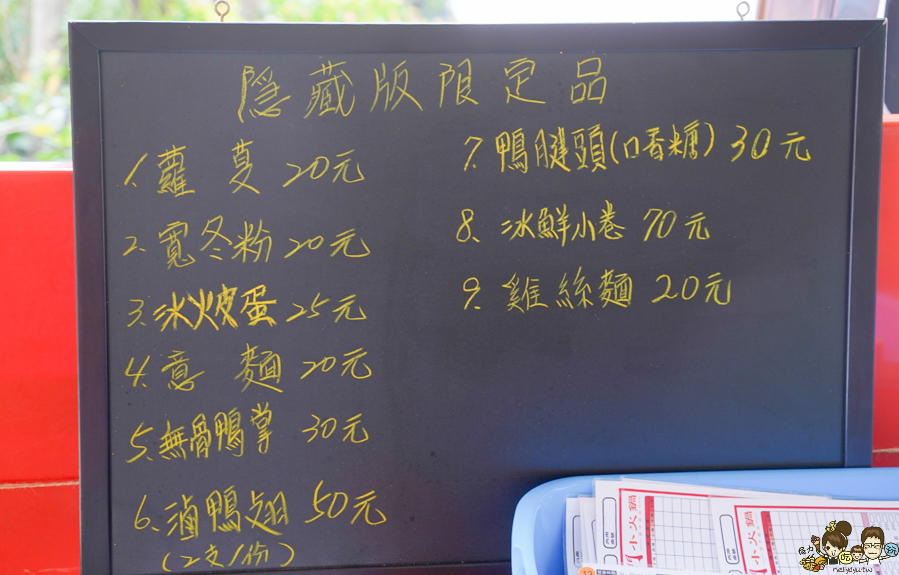 隱藏版限定品
1. 蘿蔓 20元
2. 寬冬粉 20元
3. 冰火皮蛋 25元
4. 意麵 20元
5. 無骨鴨掌 30元
6. 滷鴨翅 50元
(2支/份)
7. 鴨腱頭(口香糖) 30元
8. 冰鮮小卷 70元
9. 雞絲麵 20元
小火鍋
小火鍋
nellydyu.tw